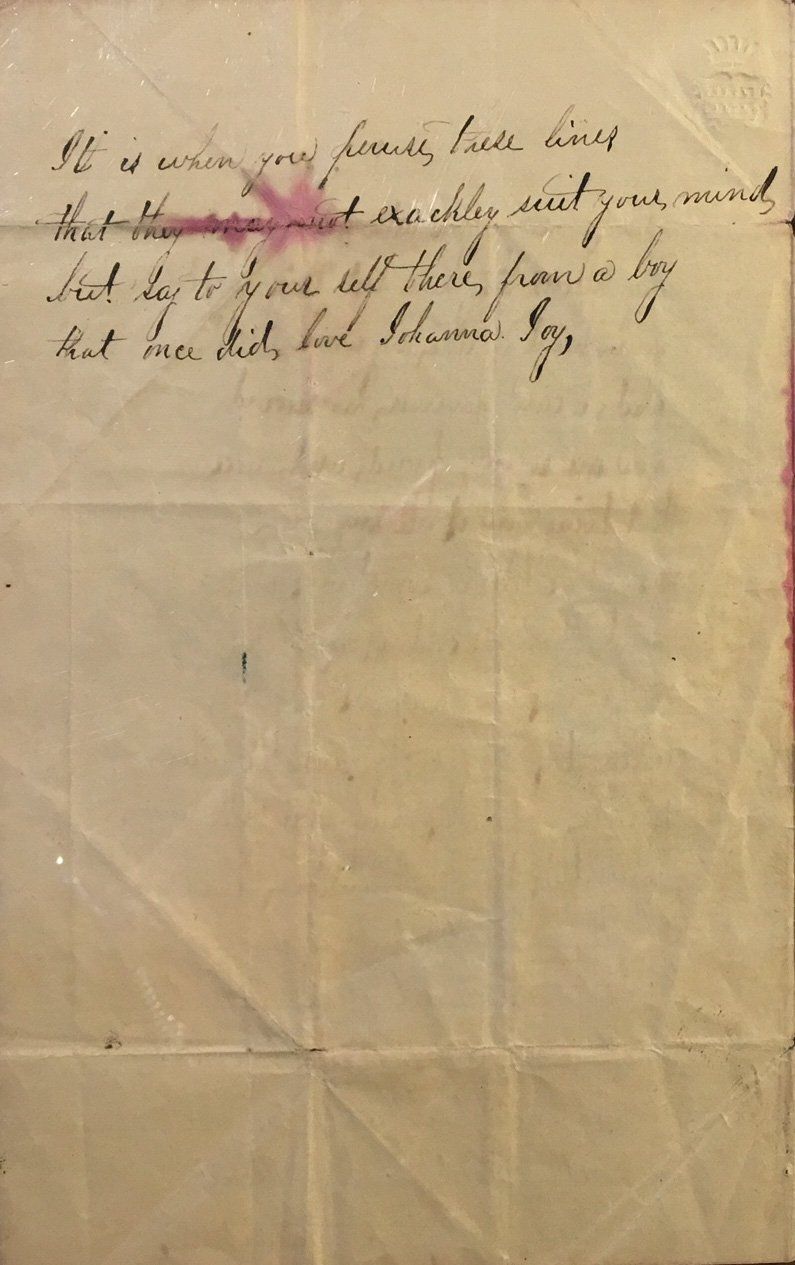 It is when you peruse, these lines
that they may not exackley suit your, mind,
but. Say to your self there, from a boy
that once did, love Johanna. Joy,